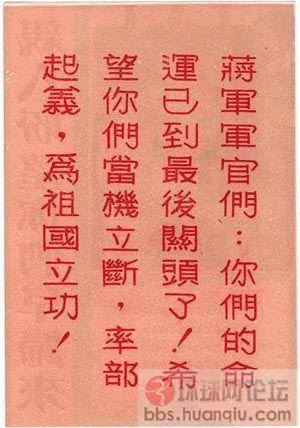 蔣軍軍官們：你們的命
運已到最後關頭了！希
望你們當機立斷，率部
起義，爲祖國立功！
环球网论坛
bbs.huanqiu.com